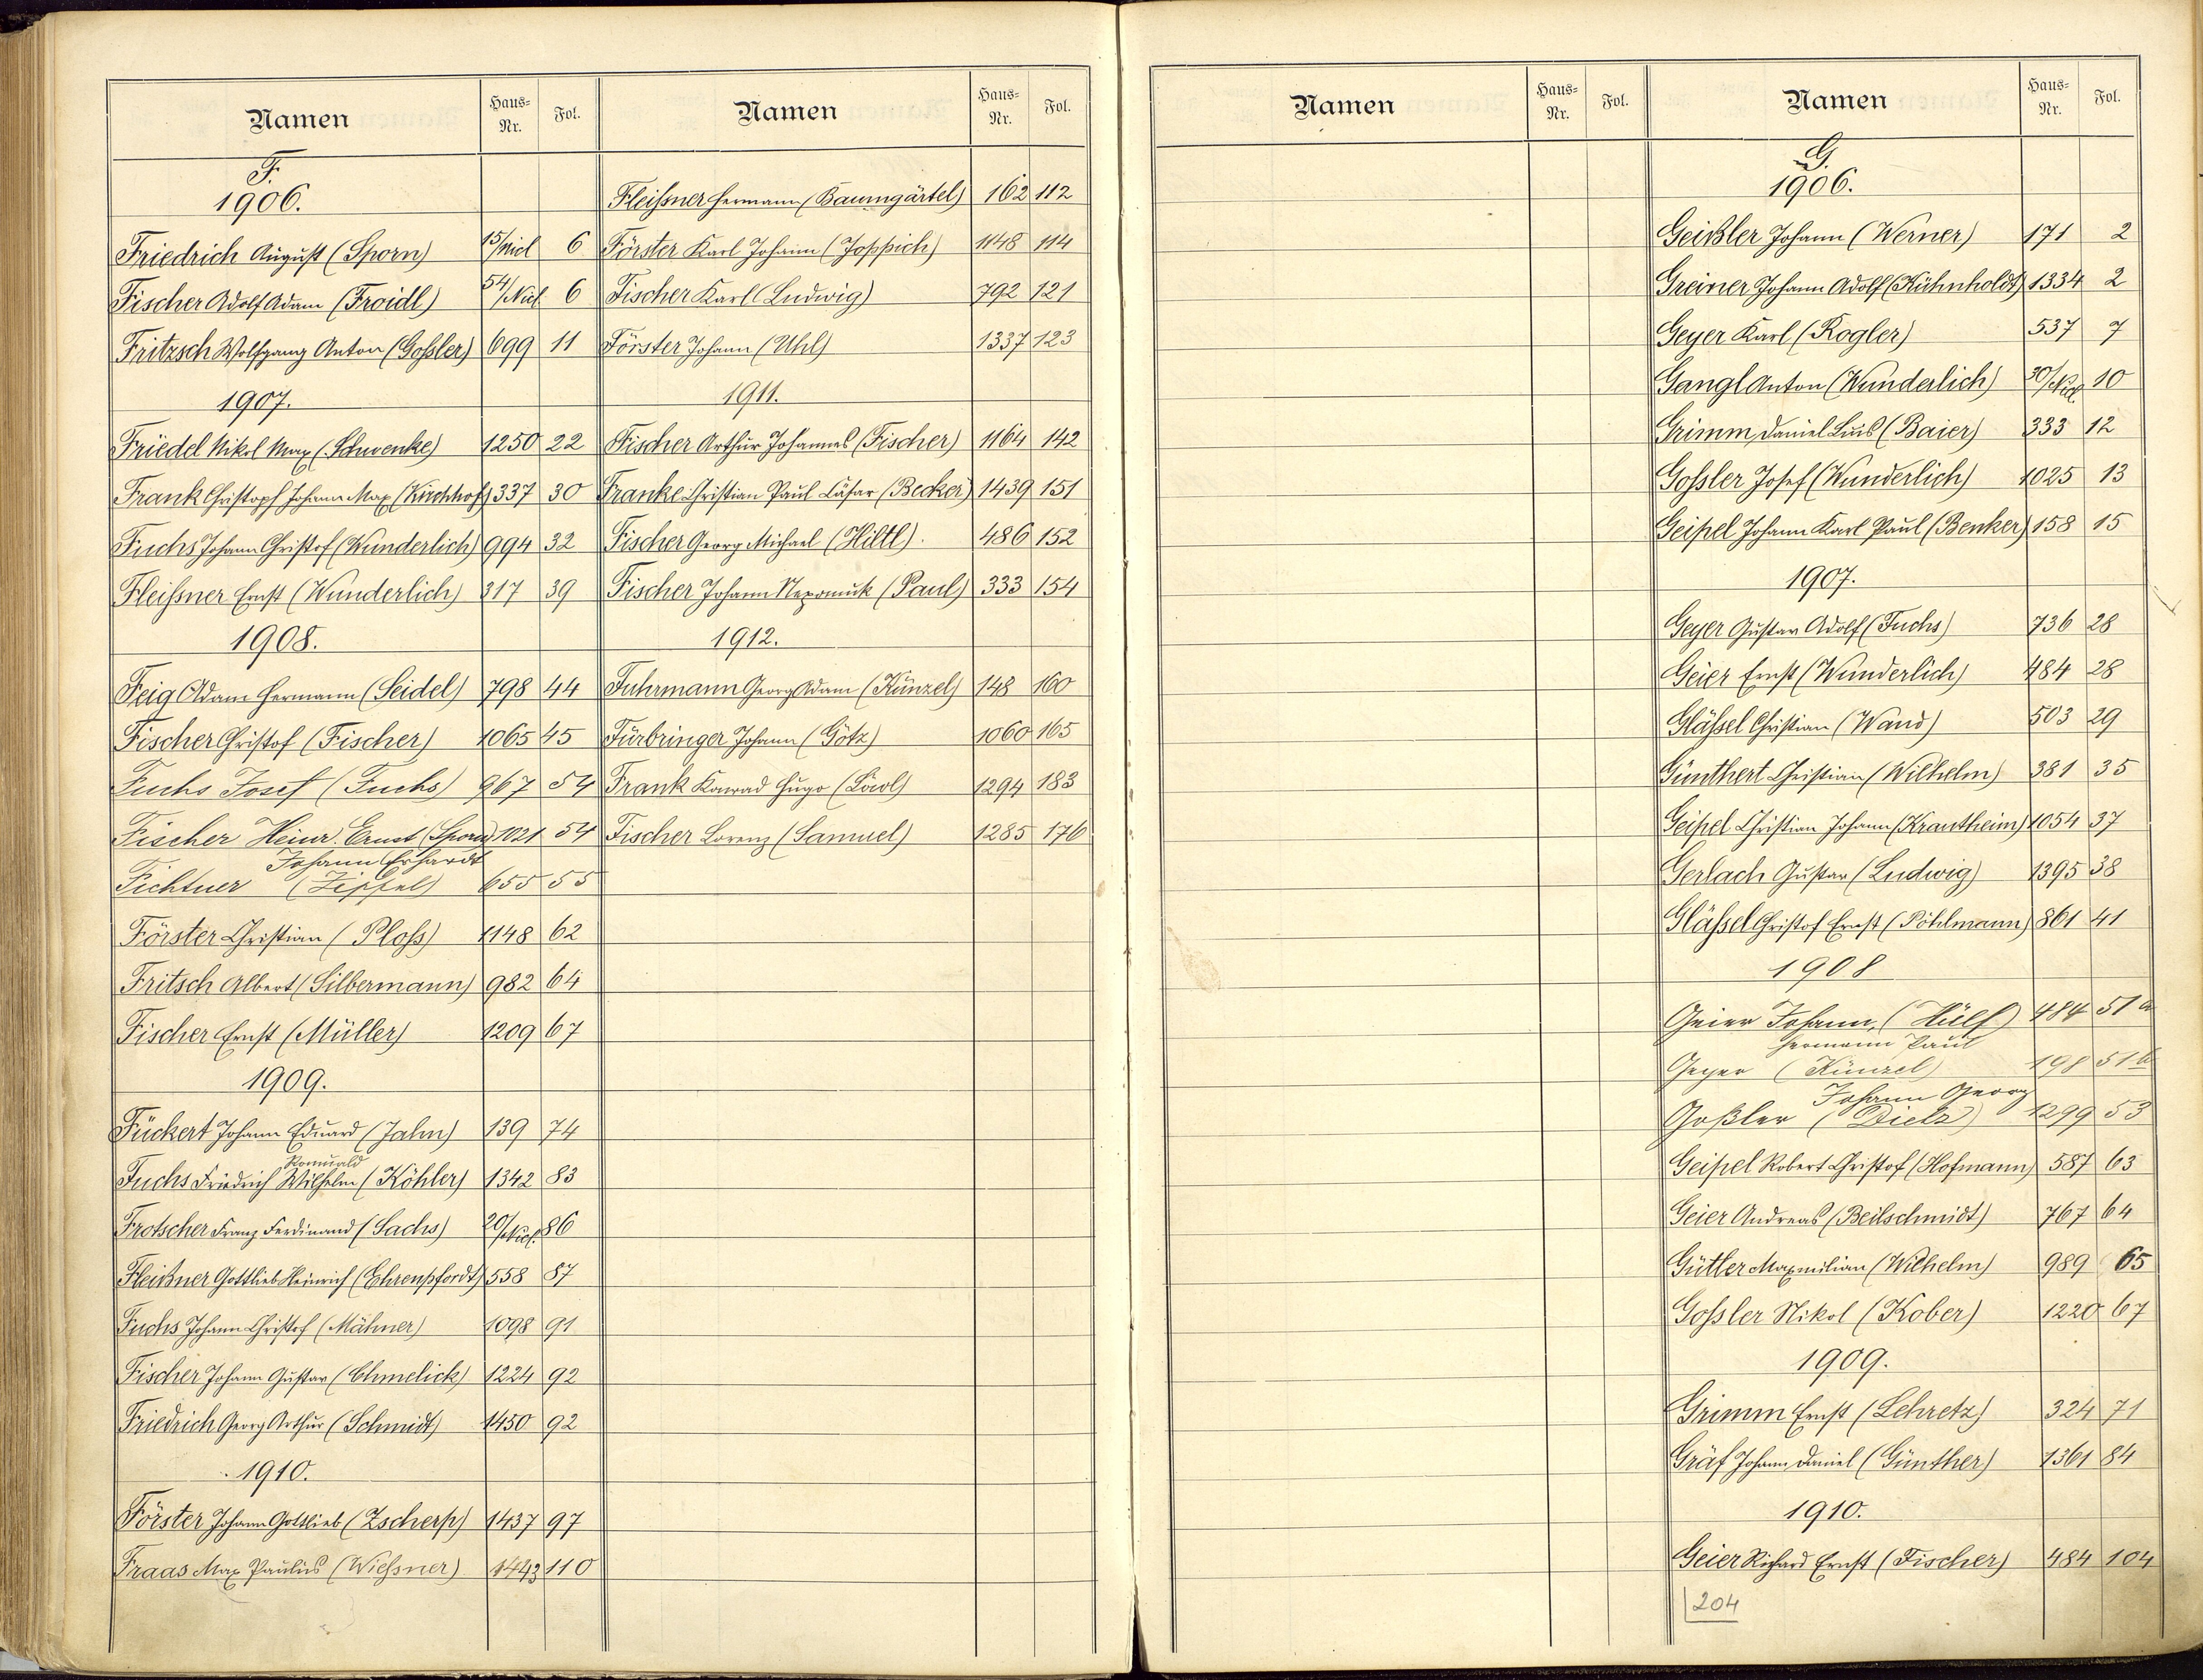 Namen Haus-Nr. Fol.
F.
1906.
Friedrich August (Sporn) 15/Nicl 6
Fischer Adolf Adam (Froidl) 54/Nicl. 6
Fritzsch Wolfgang Anton (Goßler) 699 11
1907.
Friedel Nikol Max (Schwenke) 1250 22
Frank Christoph Johann Max (Kirchhof) 337 30
Fuchs Johann Christof (Wunderlich) 994 32
Fleißner Ernst (Wunderlich) 317 39
1908.
Feig Adam Hermann (Seidel) 798 44
Fischer Christof (Fischer) 1065 45
Fuchs Josef (Fuchs) 967 54
Fischer Heinr. Ernst (Sporn) 1021 54
Johann Erhardt
Fichtner (Zipfel) 655 55
Förster Christian (Ploß) 1148 62
Fritsch Albert (Silbermann) 982 64
Fischer Ernst (Müller) 1209 67
1909.
Fückert Johann Eduard (Jahn) 139 74
Romuald
Fuchs Friedrich Wilhelm (Köhler) 1342 83
Frotscher Franz Ferdinand (Sachs) 20/Nicl. 86
Fleißner Gottlieb Heinrich (Ehrenpfordt) 558 87
Fuchs Johann Christof (Mähner) 1098 91
Fischer Johann Gustav (Chmelick) 1224 92
Friedrich Georg Arthur (Schmidt) 1450 92
1910.
Förster Johann Gottlieb (Zscherp) 1437 97
Fraas Max Paulus (Wießner) 1443 110
Namen Haus-Nr. Fol.
Fleißner Hermann (Baumgärtel) 162 112
Förster Karl Johann (Joppich) 1148 114
Fischer Karl (Ludwig) 792 121
Förster Johann (Uhl) 1337 123
1911.
Fischer Arthur Johannes (Fischer) 1164 142
Franke Christian Paul Cäsar (Becker) 1439 151
Fischer Georg Michael (Hiltl). 486 152
Fischer Johann Nepomuk (Paul) 333 154
1912.
Fuhrmann Georg Adam (Künzel) 148 160
Fürbringer Johann (Götz) 1060 165
Frank Konrad Hugo 1294 183
Fischer Lorenz (Samuel) 1285 176
Namen Haus-Nr. Fol.
Namen Haus-Nr. Fol.
G.
1906.
Geißler Johann (Werner) 171 2
Greiner Johann Adolf (Kühnholdt) 1334 2
Geyer Karl (Rogler) 537 7
Gangl Anton (Wunderlich) 30/Nicl. 10
Grimm Daniel Luis (Baier) 333 12
Goßler Josef (Wunderlich) 1025 13
Geipel Johann Karl Paul (Benker) 158 15
1907.
Geyer Gustav Adolf (Fuchs) 736 28
Geier Ernst (Wunderlich) 484 28
Gläßel Christian (Wand) 503 29
Günthert Christian (Wilhelm) 381 35
Geipel Christian Johann (Krautheim) 1054 37
Gerlach Gustav (Ludwig) 1395 38
Gläßel Christof Ernst (Pöhlmann) 861 41
1908
Geier Johann, (Hülf) 484 51a
Hermann Paul
Geyer (Künzel) 198 51b
Johann Georg
Goßler (Dietz) 1299 53
Geipel Robert Christof (Hofmann) 587 63
Geier Andreas (Beilschmidt) 767 64
Gütler Maxmilian (Wilhelm) 989 65
Goßler Nikol (Kober) 1220 67
1909.
Grimm Ernst (Lehretz) 324 71
Gräf Johann Daniel (Günther) 1361 84
1910.
Geier Richard Ernst (Fischer) 484 104
204